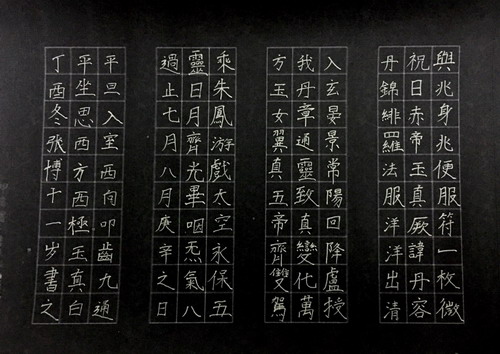 與兆身兆便服符一枚微
祝曰赤帝玉真厥諱丹容
丹錦緋羅法服洋洋出清
入玄晏景常陽回降盧授
我丹章通靈致真變化萬
方玉女翼真五帝齊雙駕
乘朱鳳游戲太空永保五
靈日月齊光畢咽炁氣八
過止七月八月庚辛之日
平旦入室西向叩齒九通
平坐思西方西極玉真白
丁酉冬張博十一岁書之